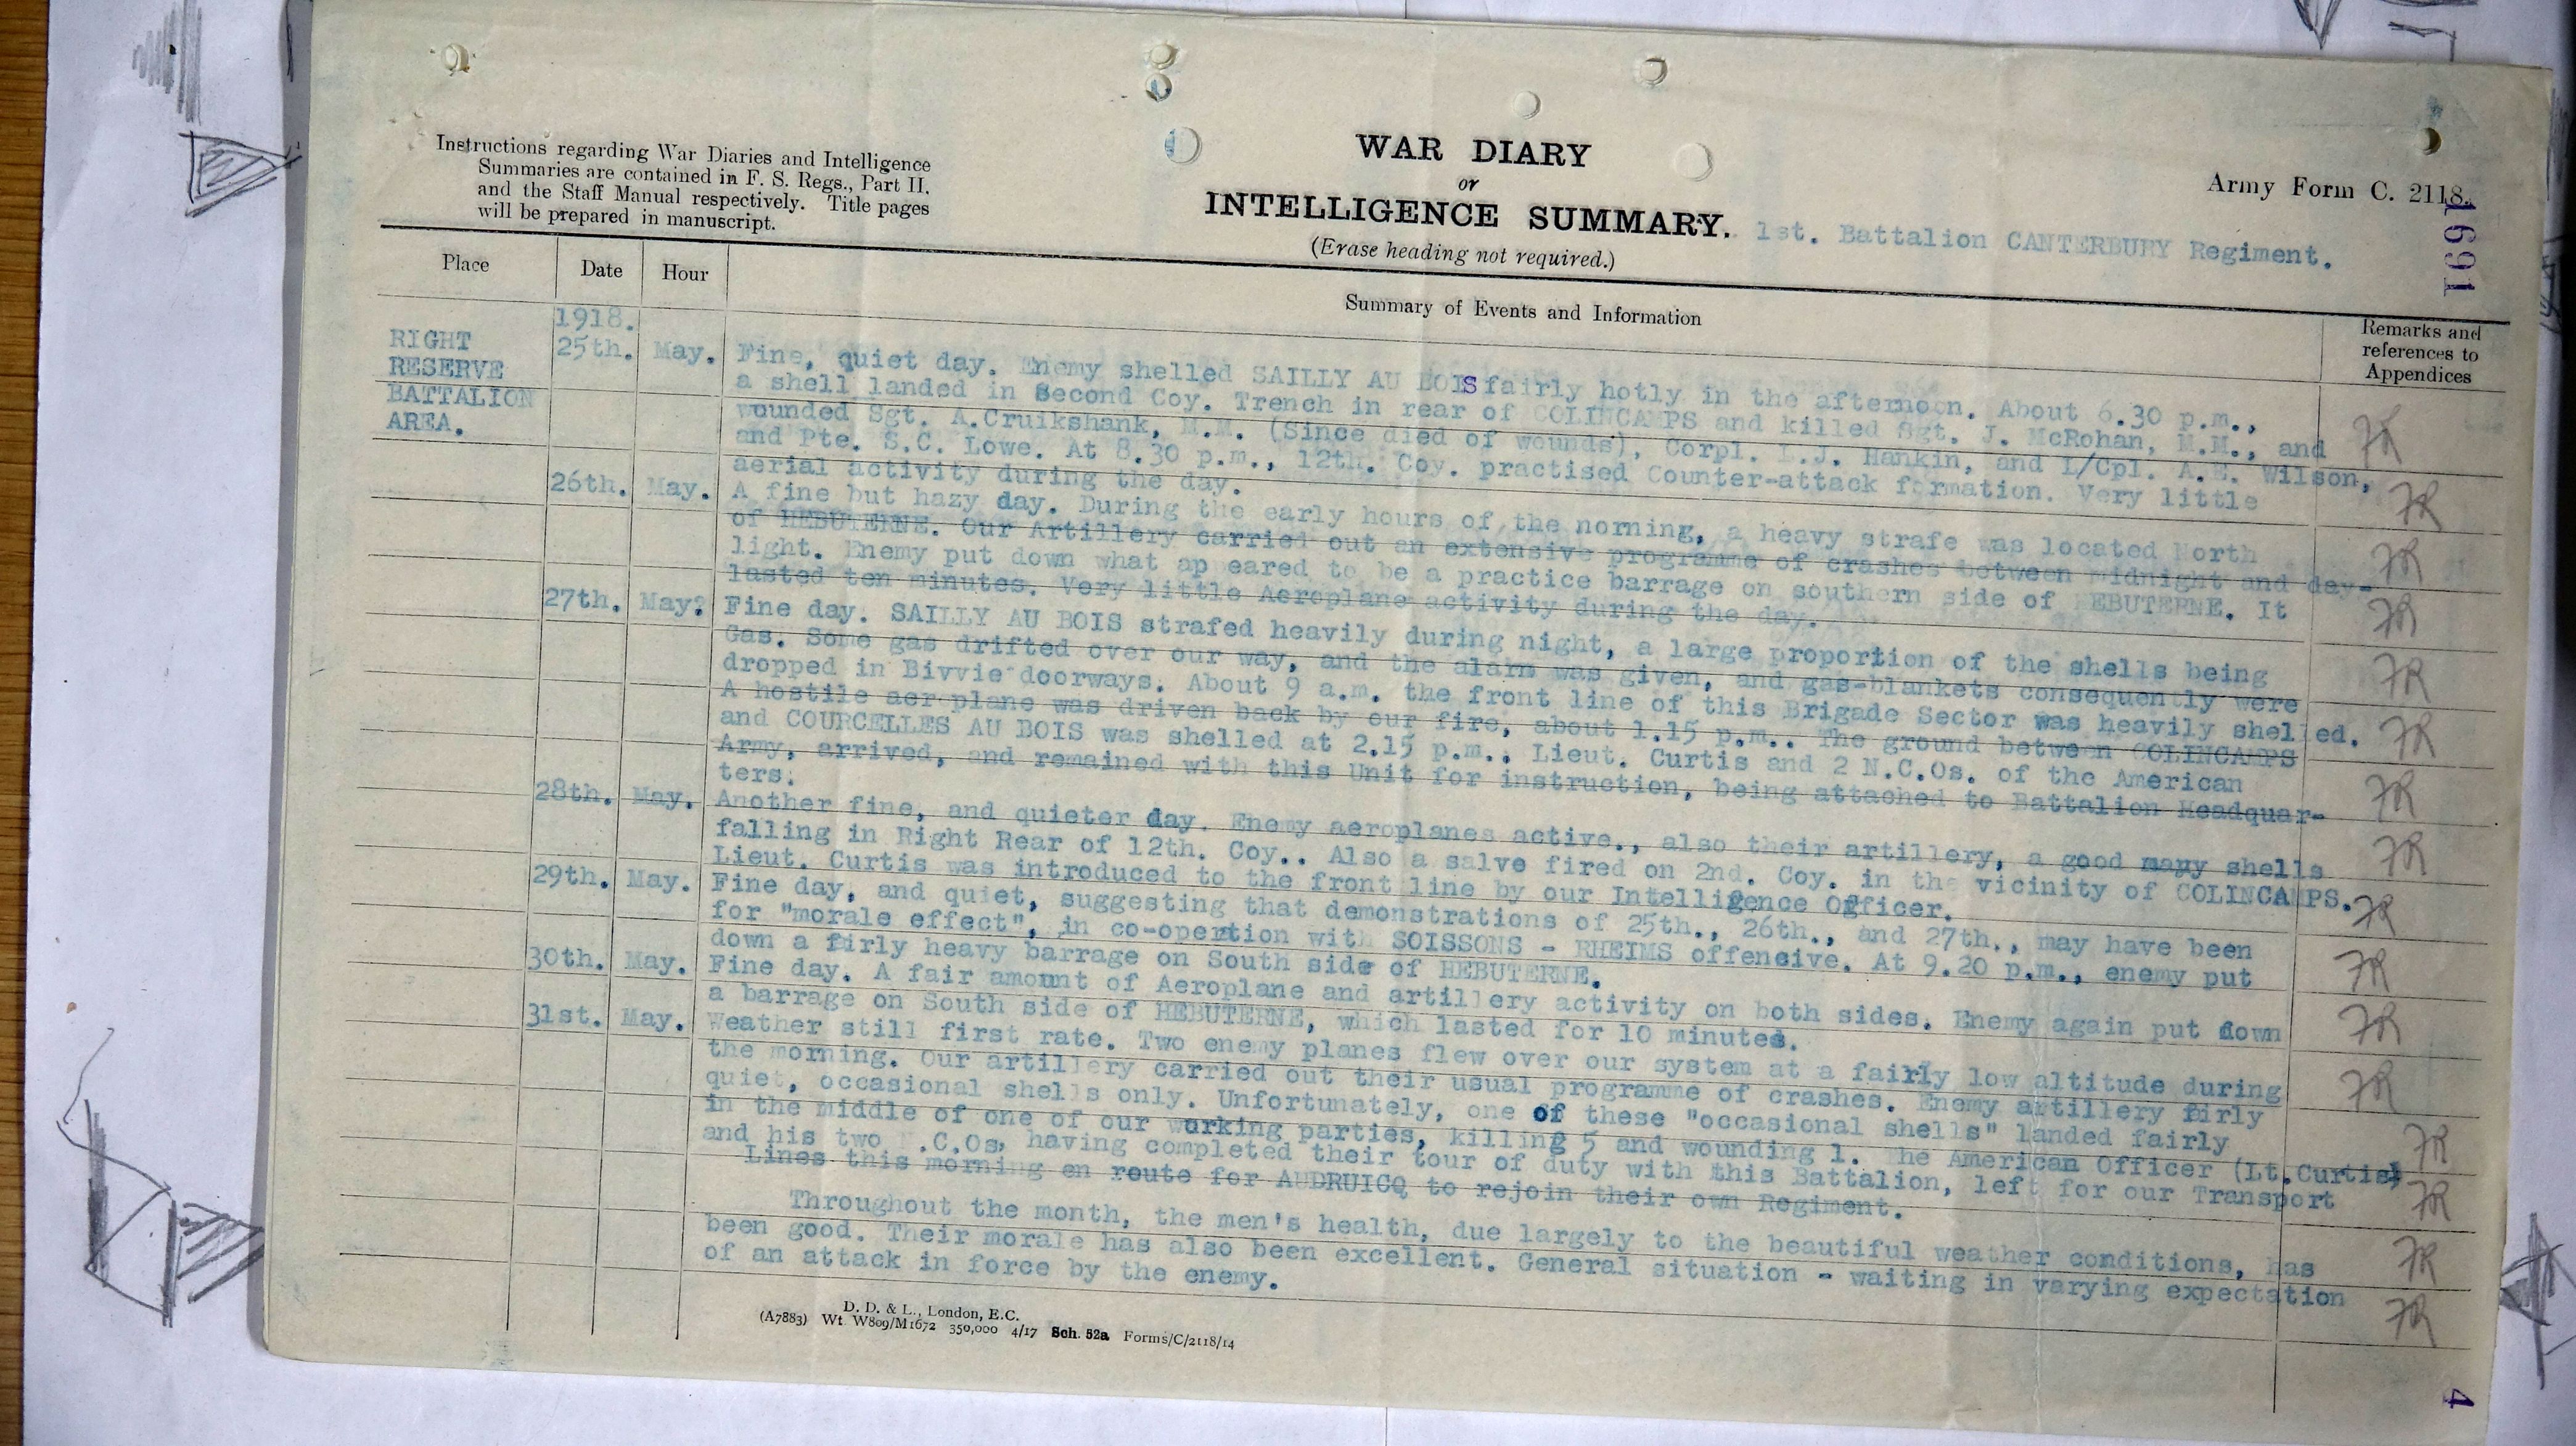 Instructions regarding War Diaries and Intelligence
Summaries are contained in F. S. Regs., Part II.
and the Staff Manual respectively. Title pages
will be prepared in manuscript.
WAR DIARY
or
INTELLIGENCE SUMMARY.
(Erase heading not required.)
1st. Battalion CANTERBURY Regiment.
Army Form C. 2118.
1691
Place
Date
Hour
Summary of Events and Information
Remarks and
references to
Appendices
RIGHT
RESERVE
BATTALION
AREA.
1918.
25th. May. Fine, quiet day. Enemy shelled SAILLY AU BOIS fairly hotly in the afternoon. About 6.30 p.m.,
a shell landed in Second Coy. Trench in rear of COLINCAMPS and killed Sgt. J. McRohan, M.M., and
wounded Sgt. A.Cruikshank, M.M. (Since died of wounds), Corpl. L.J. Hankin, and L/Cpl. A.E. Wilson,
and Pte. S.C. Lowe. At 8.30 p.m., 12th. Coy. practised Counter-attack formation. Very little
aerial activity during the day.
26th. May. A fine but hazy day. During the early hours of the norning, a heavy strafe was located North
of HEBUTERNE. Our Artillery carried out an extensive programme of crashes between midnight and day-
light. Enemy put down what appeared to be a practice barrage on southern side of HEBUTERNE. It
lasted ten minutes. Very little Aeroplane activity during the day.
27th. May? Fine day. SAILLY AU BOIS strafed heavily during night, a large proportion of the shells being
Gas. Some gas drifted over our way, and the alarm was given, and gas-blankets consequently were
dropped in Bivvie doorways. About 9 a.m. the front line of this Brigade Sector was heavily shelled.
A hostile aeroplane was driven back by our fire, about 1.15 p.m.. The ground between COLINCAMPS
and COURCELLES AU BOIS was shelled at 2.15 p.m.. Lieut. Curtis and 2 N.C.Os. of the American
Army, arrived, and remained with this Unit for instruction, being attached to Battalion Headquar-
ters.
28th. May. Another fine, and quieter day. Enemy aeroplanes active., also their artillery, a good many shells
falling in Right Rear of 12th. Coy.. Also a salvo fired on 2nd. Coy. in the vicinity of COLINCAMPS.
Lieut. Curtis was introduced to the front line by our Intelligence Officer.
29th. May. Fine day, and quiet, suggesting that demonstrations of 25th., 26th., and 27th., may have been
for "morale effect", in co-opertion with SOISSONS - RHEIMS offensive. At 9.20 p.m., enemy put
down a firly heavy barrage on South side of HEBUTERNE.
30th. May. Fine day. A fair amount of Aeroplane and artillery activity on both sides. Enemy again put down
a barrage on South side of HEBUTERNE, which lasted for 10 minutes.
31st. May. Weather still first rate. Two enemy planes flew over our system at a fairly low altitude during
the morning. Our artillery carried out their usual programme of crashes. Enemy artillery firly
quiet, occasional shells only. Unfortunately, one of these "occasional shells" landed fairly
in the middle of one of our working parties, killing 5 and wounding 1. The American Officer (Lt.Curtis)
and his two N.C.Os, having completed their tour of duty with this Battalion, left for our Transport
Lines this morning en route for AUDRUICQ to rejoin their own Regiment.
Throughout the month, the men's health, due largely to the beautiful weather conditions, has
been good. Their morale has also been excellent. General situation - waiting in varying expectation
of an attack in force by the enemy.
D. D. & L., London, E.C.
(A7883) Wt. W809/M1672 350,000 4/17 Sch. 52a Forms/C/2118/14
4